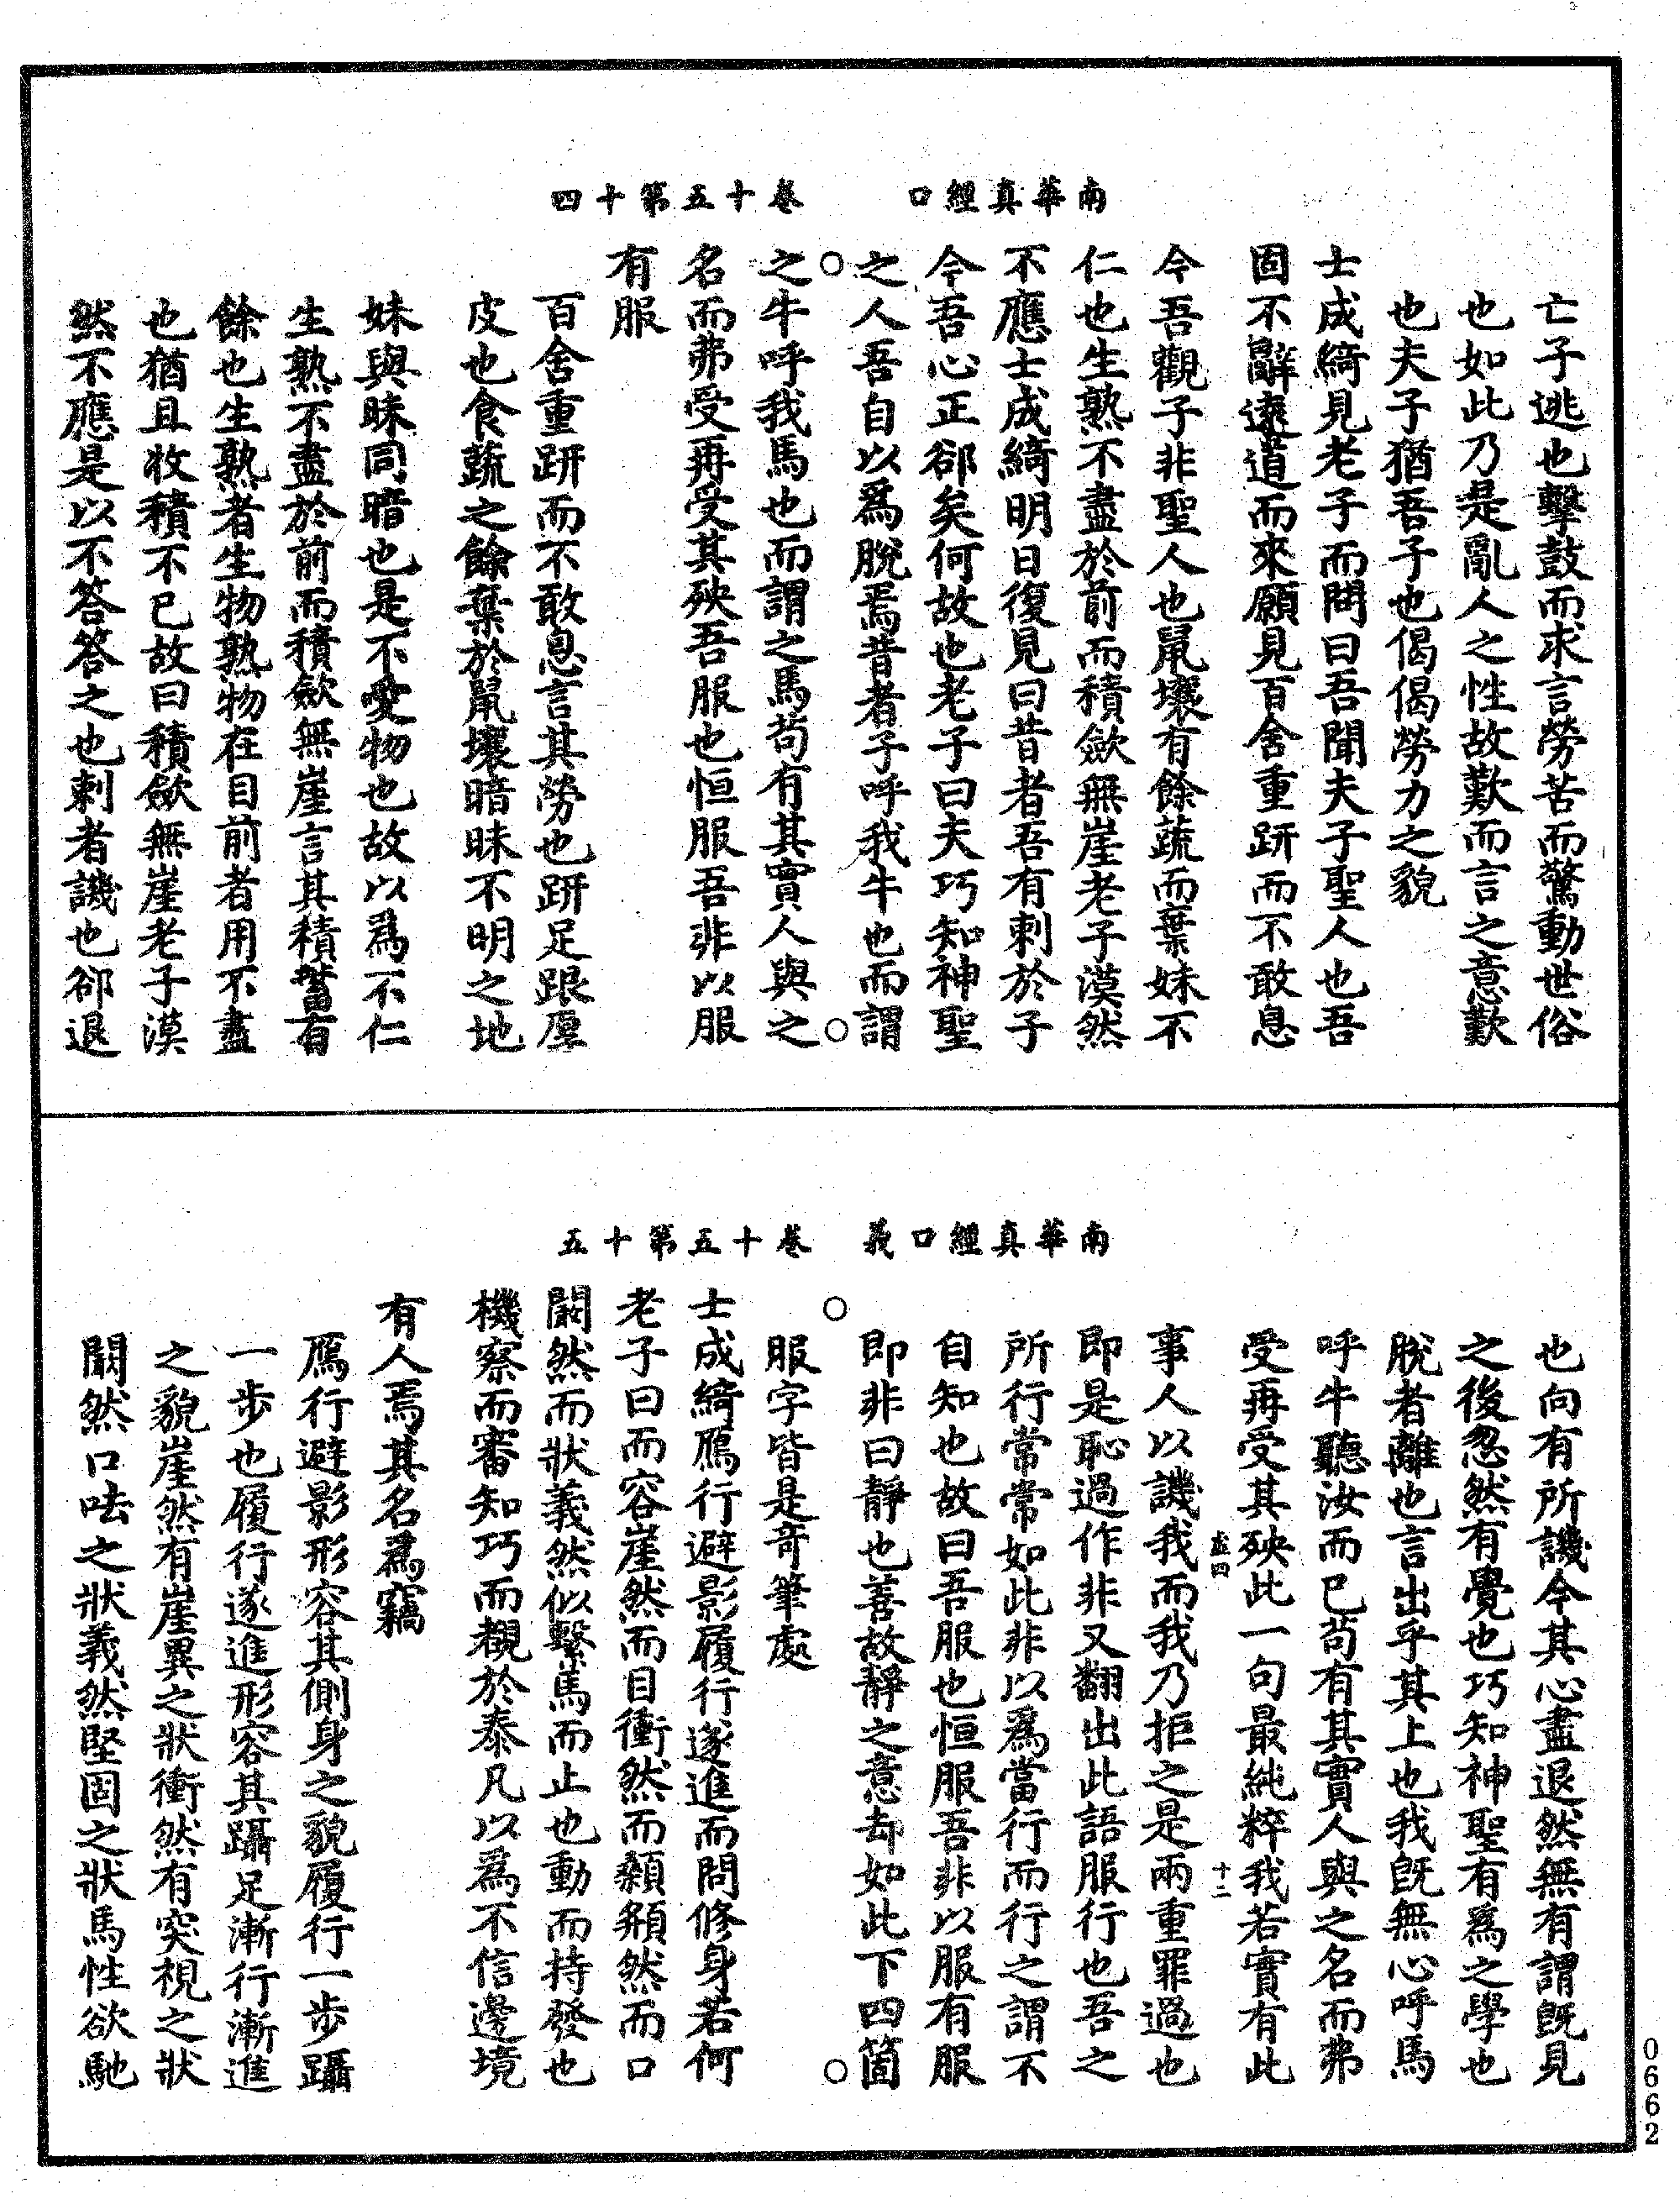 南華真經口　卷十五第十四
亡子逃也擊鼓而求言勞苦而驚動世俗
也如此乃是亂人之性故歎而言之意歎
也夫子猶吾子也偈偈勞力之貌
士成綺見老子而問曰吾聞夫子聖人也吾
固不辭遠道而來願見百舍重趼而不敢息
今吾觀子非聖人也鼠壤有餘蔬而葉妹不
仁也生熟不盡於前而積歛無崖老子漠然
不應士成綺明日復見曰昔者吾有刺於子
今吾心正郤矣何故也老子曰夫巧知神聖
之人吾自以爲脫焉昔者子呼我牛也而謂
之牛呼我馬也而謂之馬苟有其實人與之
名而弗受再受其殃吾服也恒服吾非以服
有服
百舍重趼而不敢息言其勞也趼足跟厚
皮也食蔬之餘棄於鼠壤暗昧不明之地
妹與昧同暗也是不愛物也故以爲不仁
生熟不盡於前而積歛無崖言其積蓄有
餘也生熟者生物熟物在目前者用不盡
也猶且收積不已故曰積歛無崖老子漠
然不應是以不答答之也刺者譏也郤退
南華真經口義　卷十五第十五
也向有所譏今其心盡退然無有謂旣見
之後忽然有覺也巧知神聖有爲之學也
脫者離也言出乎其上也我旣無心呼馬
呼牛聽汝而已苟有其實人與之名而弗
受再受其殃此一句最純粹我若實有此
十二
事人以譏我而我乃拒之是兩重罪過也
即是恥過作非又翻出此語服行也吾之
所行常常如此非以爲當行而行之謂不
自知也故曰吾服也恒服吾非以服有服
即非曰靜也善故靜之意却如此下四箇
服字皆是奇筆處
士成綺鴈行避影履行遂進而問修身若何
老子曰而容崖然而目衝然而顙頯然而口
闞然而狀義然似繫馬而止也動而持發也
機察而審知巧而覩於泰凡以爲不信邊境
有人焉其名爲竊
鴈行避影形容其側身之貌履行一步躡
一步也履行遂進形容其躡足漸行漸進
之貌崖然有崖異之狀衝然有突視之狀
闞然口呿之狀義然堅固之狀馬性欲馳
0662